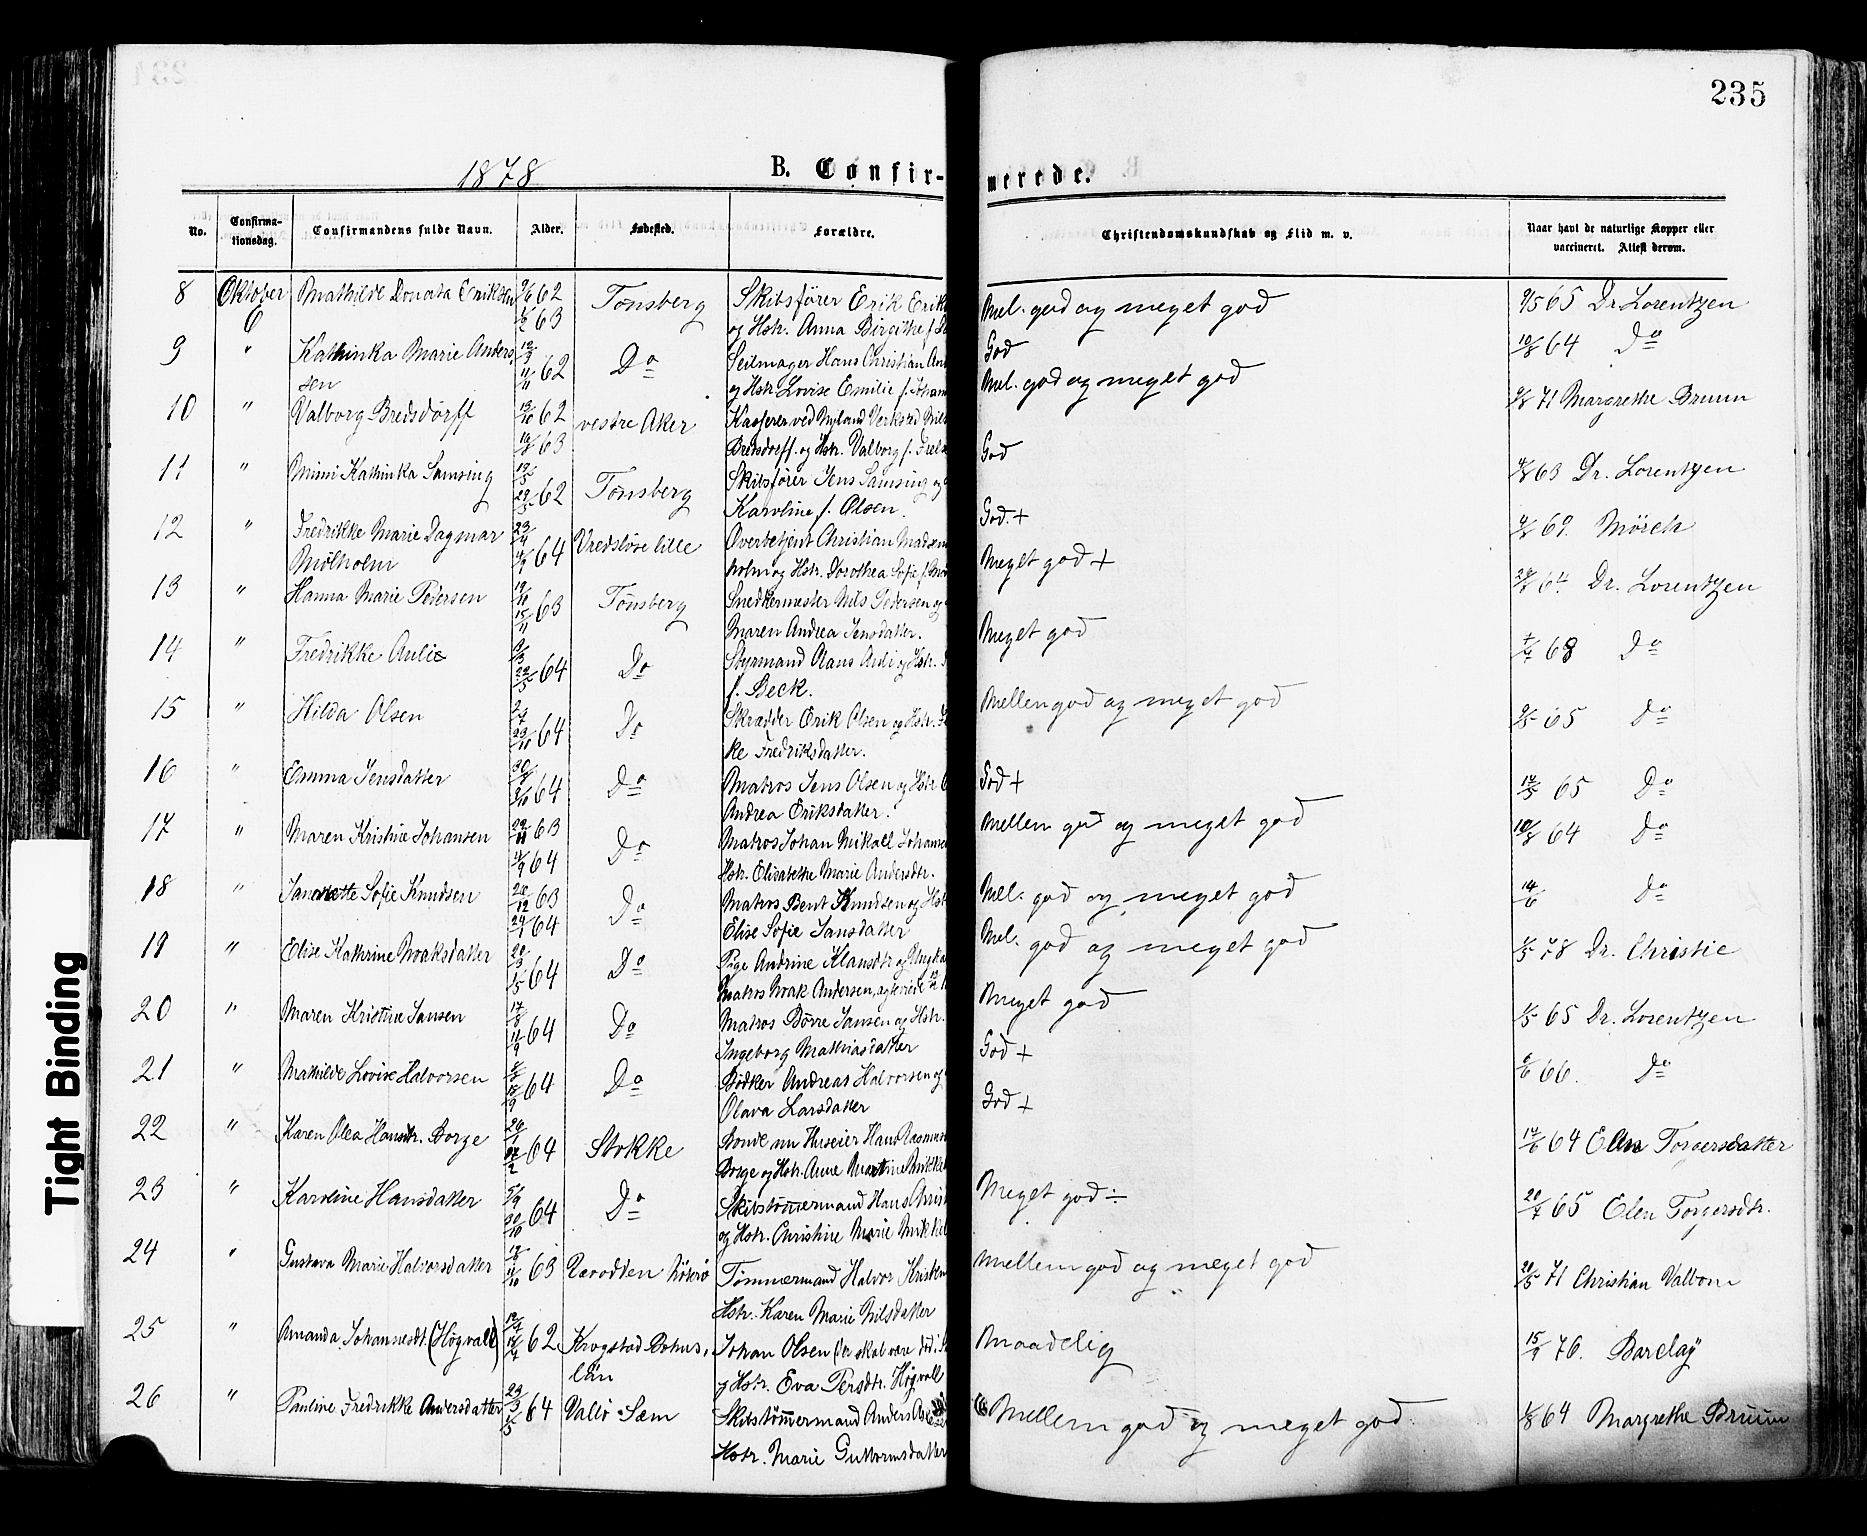 235
1878
B. Confir-
merede.
No.
Confirma-
tionsdag.
Confirmandens fulde Navn.
Alder.
Fødested.
Forældre.
Christendomskundskab og Flid m. v.
Naar havt de naturlige Kopper eller
vaccineret. Attest derom.
8 Oktober Mathilde Donata Eriksen 62 Tønsberg Skibsfører Erik Erik
6 63 og Hstr. Anna Birgithe f.
Mel. god og meget god 9/5 65 Dr Lorentzen
9 " Kathinka Marie Anders- 62 Do Seilmager Hans Christian An
sen og Hstr Lovise Emilie f. Joham
God 64 Do
10 " Valborg Bredsdorff 62 vestre Aker Kasserer ved Nyland Verksted
63 Bredsdorff og Hstr. Valborg f.
Mel. god og meget god 71 Margrethe Bruun
11 " Mimi Kathinka Samsing 62 Tønsberg Skibsfører Jens Samsing og
Karoline f. Olsen.
God 63 Dr. Lorentzen
12 " Fredrikke Marie Dagmar 64 Vredsløse lille Overbetjent Christian Madsen
Mølholm holm og Hstr. Dorothea Sofie f.
God. + 69. Mørch
13 " Hanna Marie Pedersen 63 Tønsberg Snedkermester Nils Pedersen og
Maren Andrea Jensdatter.
Meget god + 64. Dr. Lorentzen
14 " Fredrikke Aulie 64 Do Styrmand Olaus Auli og Hstr.
f. Beck.
Meget god 68 Do
15 " Hilda Olsen 64 Do Skrædder Erik Olsen og Hstr.
ke Fredriksdatter.
Mellem god og meget god 65 Do
16 " Emma Jensdatter 64 Do Matros Jens Olsen og Hstr
Andrea Eriksdatter.
God + 65 Do
17 " Maren Kristine Johansen 63 Do Matros Johan Mikael Johanse
64 Hstr. Elisabethe Marie Andersdtr.
Mellem god og meget god 64 Do
18 " Sofie Knudsen 63 Do Matros Bent Knudsen og Hst
64 Elise Sofie Jansdatter
Mel. god og meget god 14/6 Do
19 " Elise Kathrine Noaksdatter 64 Do Pige Andrine Klausdtr og Ungka
Matros Noak Andersen,
Mel. god og meget god 78 Dr. Christie
20 " Maren Kristine Jansen 64 Do Matros Børre Jansen og Hstr.
Ingeborg Mathiasdatter
Meget god 65 Dr. Lorentzen
21 " Mathilde Lovise Halvorsen 64 Do Bødker Andreas Halvorsen og
Olava Larsdatter
God + 66. Do
22 " Karen Olea Hansdtr. Borge 64 Stokke Bonde nu Huseier Hans Rasmus
Borge og Hstr. Anne Martine
God + 64 Elen Torgersdatter
23 " Karoline Hansdatter 64 Do Skibstømmermand Hans Christ
og Hstr. Christine Marie Mikkel
Meget god ÷ 65 Elen Torgersdtr.
24 " Gustava Marie Halvorsdatter 63 Tømmermand Halvor Kristen
Hstr. Karen Marie Nilsdatter
Mellem god og meget god 71 Christian Valbom
25 " Amanda Johannesdt. (Høgvall) 62 Krogstad Bohus-
län
Johan Olsen (er skal være død i
og Hstr. Eva Persdtr. Høgvall
Maadelig 15/9 76. Barclay
26 " Pauline Fredrikke Andersdatter 64 Vallø Sæm Skibstømmermand Anders
Hstr. Marie Guttormsdatter
Mellem god og meget god. 64 Margrethe Bruun
Tight Binding